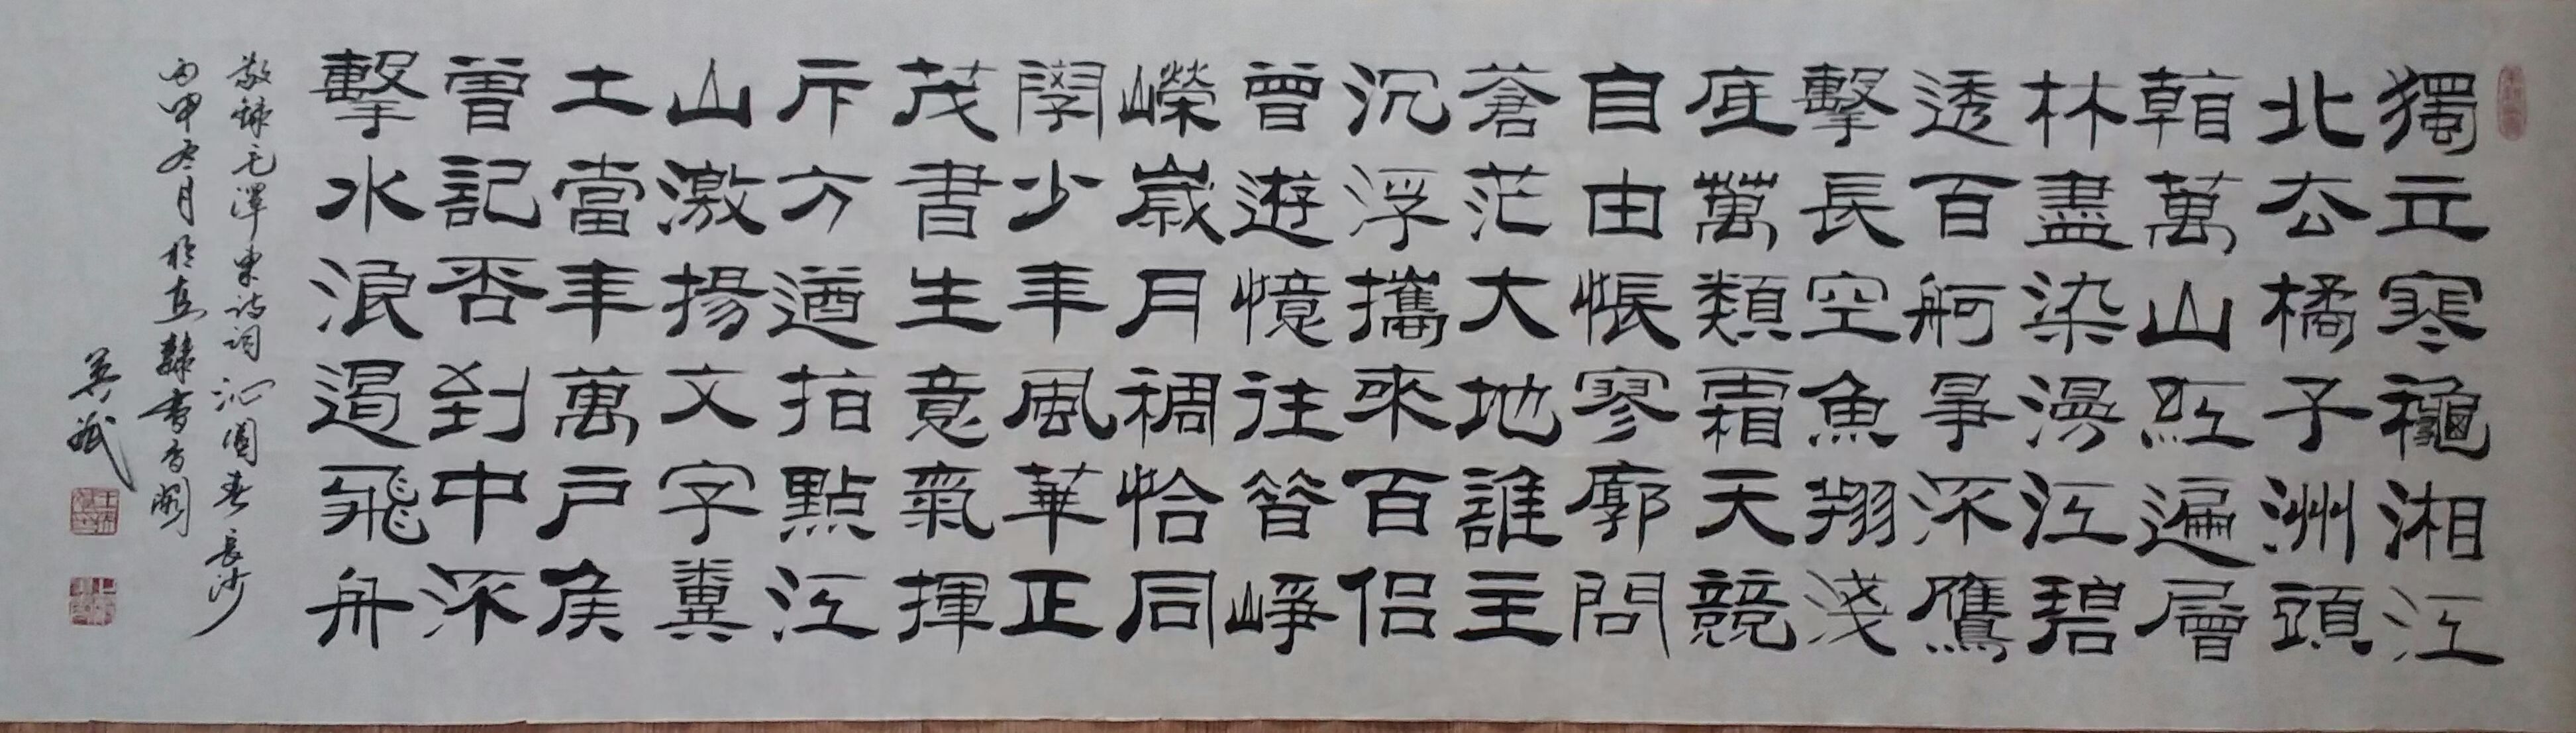 獨立寒龝湘江
北厺橘子洲頭
看萬山紅遍層
林盡染漫江碧
透百舸爭流鷹
擊長空魚翔淺
底萬類霜天競
自由悵寥廓問
蒼茫大地誰主
沉浮攜來百侶
曾遊憶往昔崢
嶸歲月稠恰同
學少年風華正
茂書生意氣揮
斥方遒指點江
山激揚文字糞
土當年萬戶侯
曾記否到中流
擊水浪遏飛舟
敬錄毛澤東詩詞沁園春長沙
丙申冬月於直隸書香閣
英斌